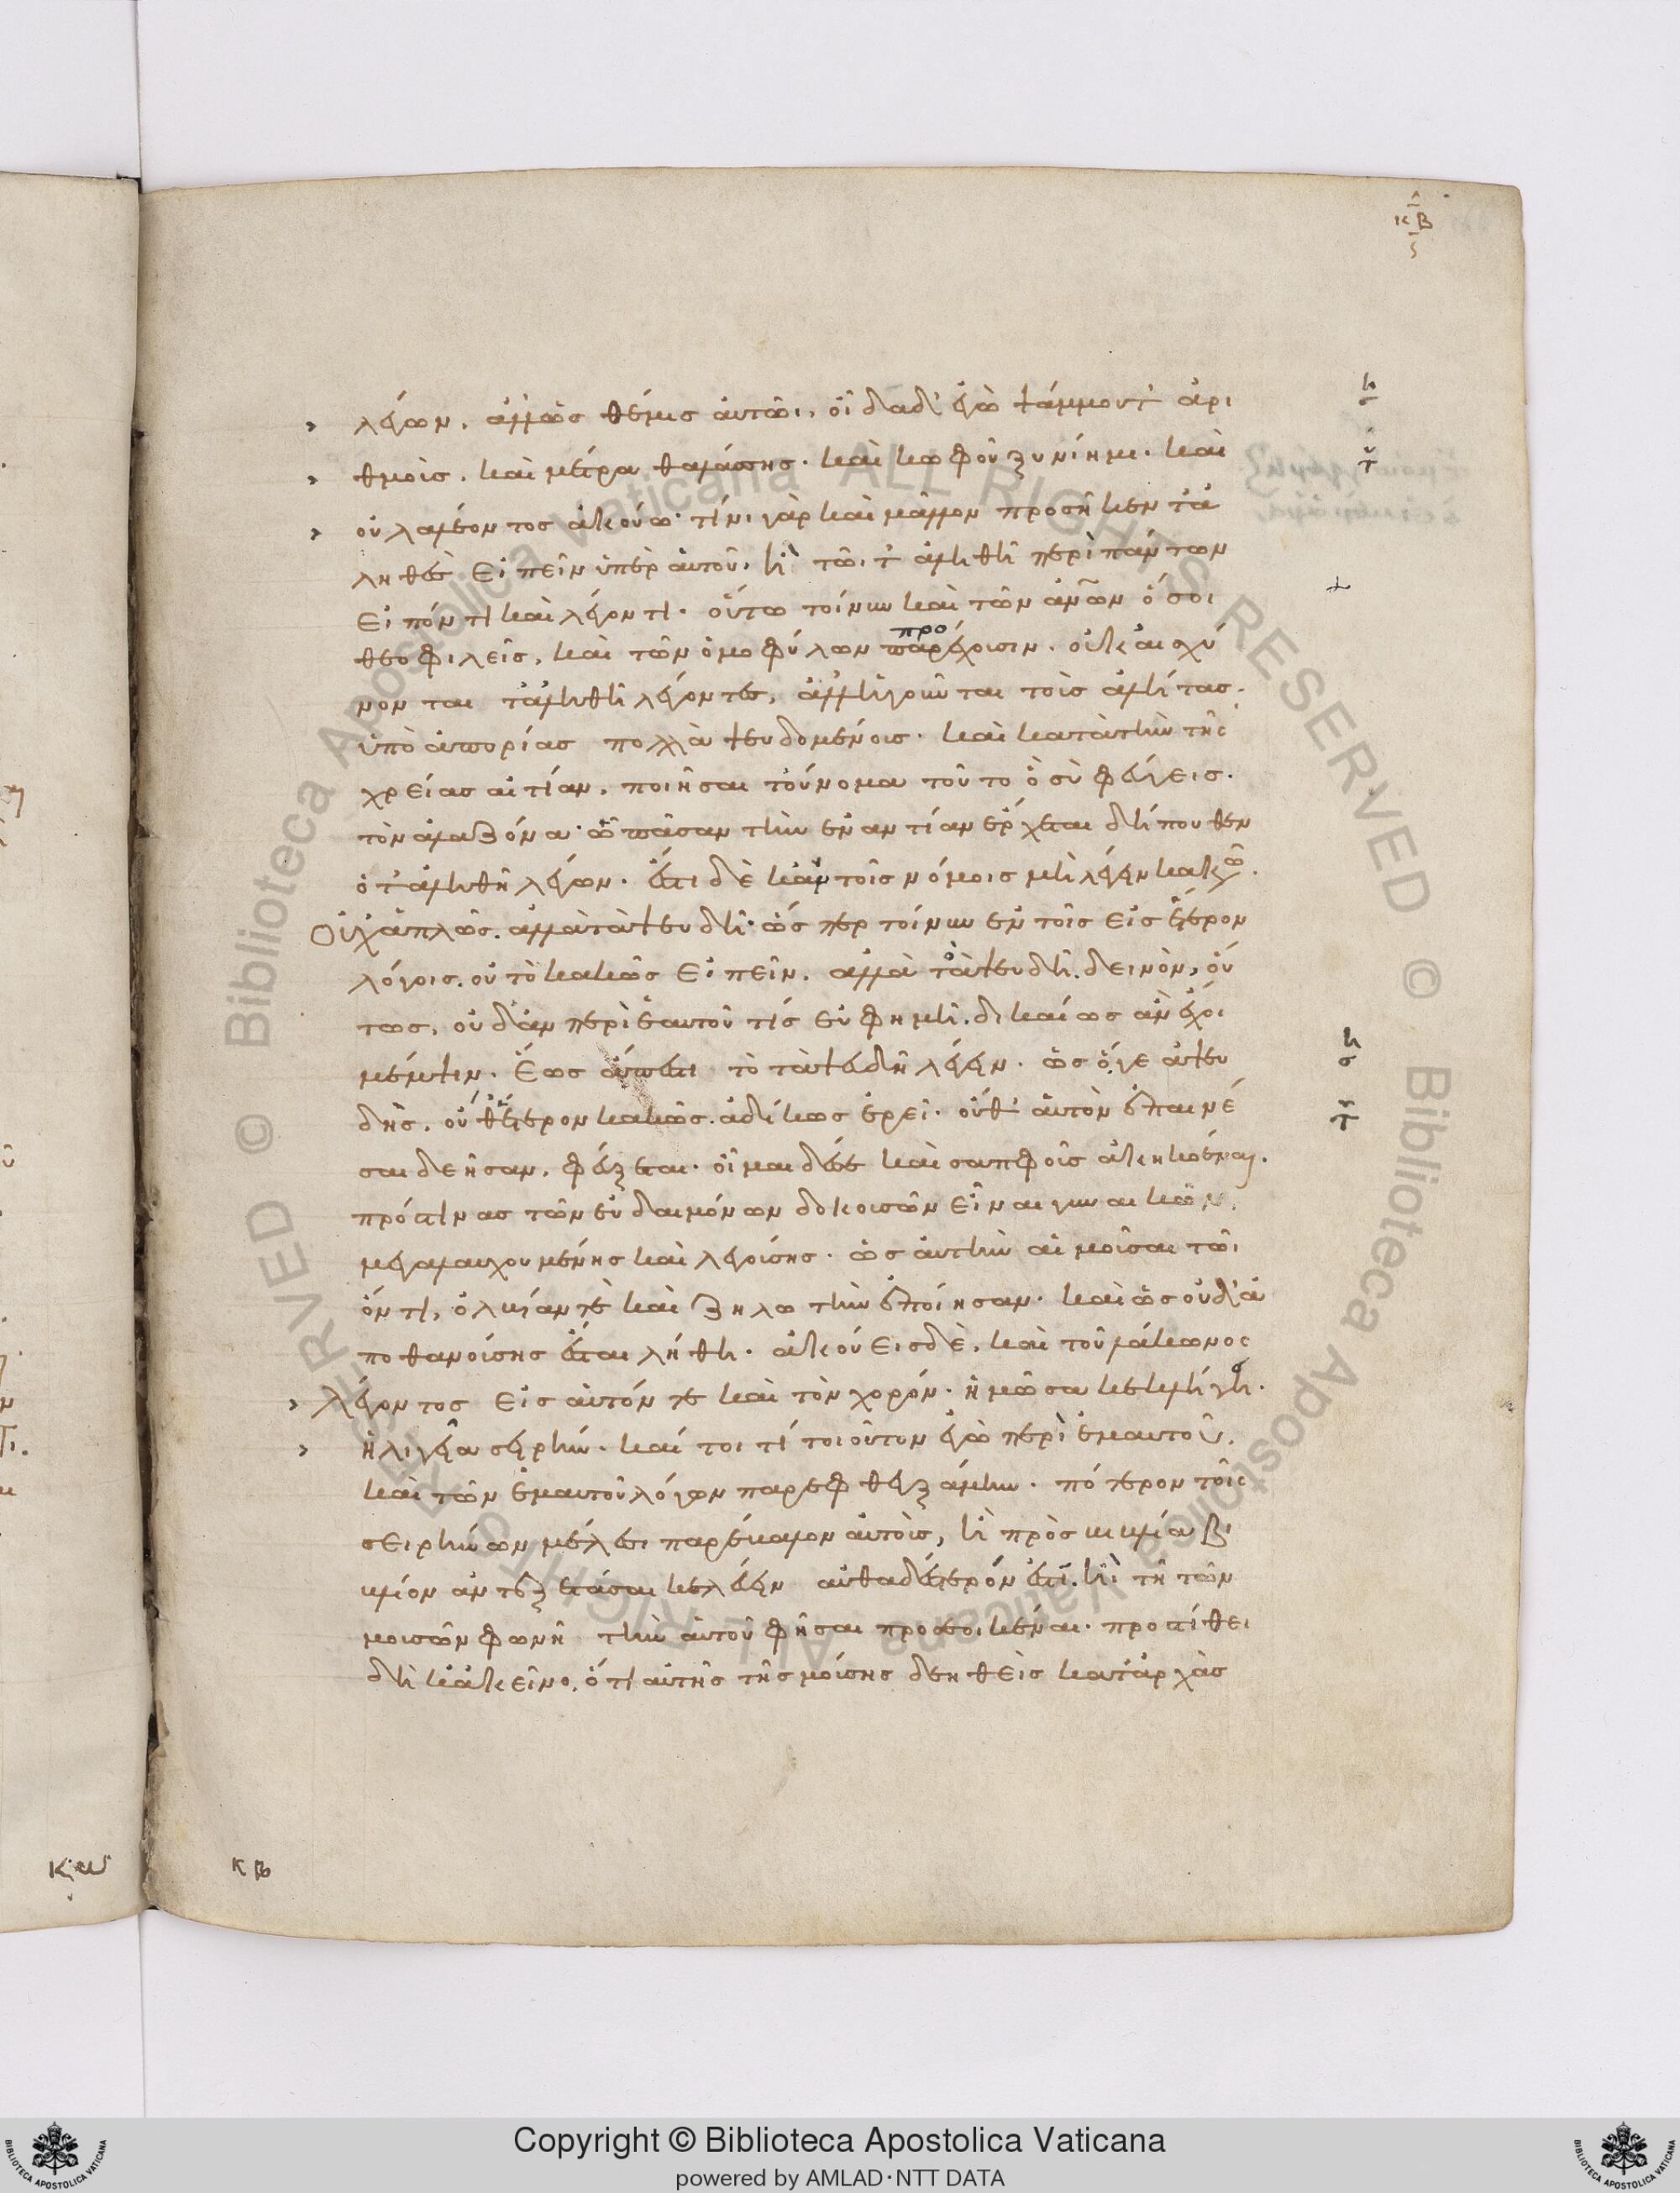 κβ
λέγων. ἀλλ' ὡς θέμις αὐτῶι. οἶδα δ' ἐγὼ ψάμμου τ' ἀρι
θμοὺς. καὶ μέτρα θαλάσσης. καὶ κωφοῦ ξυνίημι. καὶ
οὐ λαλέοντος ἀκούω· τίνι γὰρ καὶ μᾶλλον προσῆκεν τἀ
ληθὲς εἰπεῖν ὑπὲρ αὐτοῦ. ἢ τῶι τ' ἀληθῆ περὶ πάντων
εἰπόντι καὶ λέγοντι. οὕτω τοίνυν καὶ τῶν ἀνων ὅσοι
θεοφιλεῖς, καὶ τῶν ὁμοφύλων παρέχουσιν. οὐκ αἰσχύ
προ
νονται τἀληθῆ λέγοντες, ἀλλ' ἡγοῦνται τοῖς ἀλήταις.
ὑπὸ ἀπορίας πολλὰ ψευδομένοις. καὶ κατὰ τὴν τῆς
χρείας αἰτίαν. ποιῆσαι τοὔνομα τοῦτο ὃ σὺ φεύγεις.
τὸν ἀλαζόνα· ὧι πᾶσαν τὴν ἐναντίαν ἔρχεται δήπουθεν
ὁ τἀληθῆ λέγων. ἔστι δὲ κἀν τοῖς νόμοις μὴ λέγειν κακῶ.
οὐχ ἁπλῶς. ἀλλὰ τὰ ψευδῆ· ὥσπερ τοίνυν ἐν τοῖς εἰς ἕτερον
λόγοις. οὐ τὸ κακῶς εἰπεῖν. ἀλλὰ τὸ τὰ ψευδῆ. δεινὸν, οὕ
τως. οὐδ' ἂν περὶ ἑαυτοῦ τίς εὐφημῆ. δικαίως ἂν ἔχοι
μέμψιν. ἕως ἄπεστι τὸ τὰ ψευδῆ λέγειν. ὡς ὅγε ἀψευ
δὴς. οὔθ' ἕτερον κακῶς. ἀδίκως ἐρεῖ. οὔθ' αὑτὸν ἐπαινέ
σαι δεῆσαν. φεύξεται. οἶμαι δέ σε καὶ σαπφοῦς ἀκηκοέναι.
πρός τινας τῶν εὐδαιμόνων δοκουσῶν εἶναι γυναικῶν.
μεγαλαυχουμένης καὶ λεγούσης. ὡς αὐτὴν αἱ μοῦσαι τῶι
ὄντι, ὀλβίαν τε καὶ ζηλωτὴν ἐποίησαν. καὶ ὡς οὐδ' ἀ
ποθανούσης ἔσται λήθη. ἀκούεις δὲ. καὶ τοῦ λάκωνος
λέγοντος εἰς αὑτόν τε καὶ τὸν χορόν. ἡ μῶσα κέκληγε.
ἡ λιγεῖα σειρήν. καί τοι τί τοιοῦτον ἐγὼ περὶ ἐμαυτοῦ.
καὶ τῶν ἐμαυτοῦ λόγων παρεφθεγξάμην. πότερον τοῖς
σειρήνων μέλεσι παρέβαλον αὐτοὺς, ἢ πρὸς βιβλία βι
βλίον ἀντεξετάσαι κελεύειν αὐθαδέστερόν ἐστι. ἢ τῆ τῶν
μουσῶν φωνῆ τὴν αὑτοῦ φῆσαι προσεοικέναι. προστίθει
δὴ κἀκεῖνο. ὅτι αὐτῆς τῆς μούσης δεηθεὶς κατ' ἀρχὰς
κβ
Copyright © Biblioteca Apostolica Vaticana
powered by AMLAD·NTT DATA